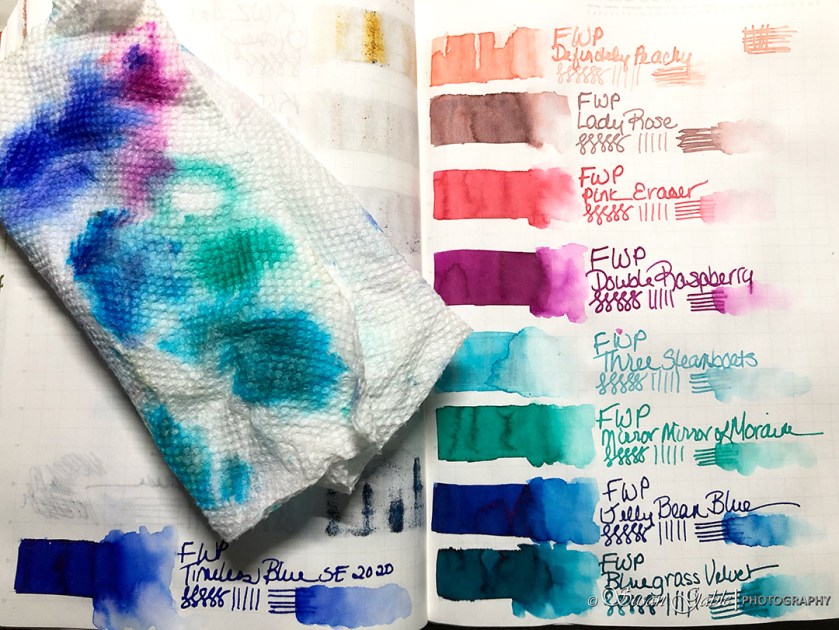 FWP
Timeless Blue SE 2020
FWP
Definitely Peachy
FWP
Lady Rose
FWP
Pink Eraser
FWP
Double Raspberry
FWP
Three Steamboats
FWP
Mirror Mirror of Moraine
FWP
Jelly Bean Blue
FWP
Bluegrass Velvet
© Susan Gable | PHOTOGRAPHY